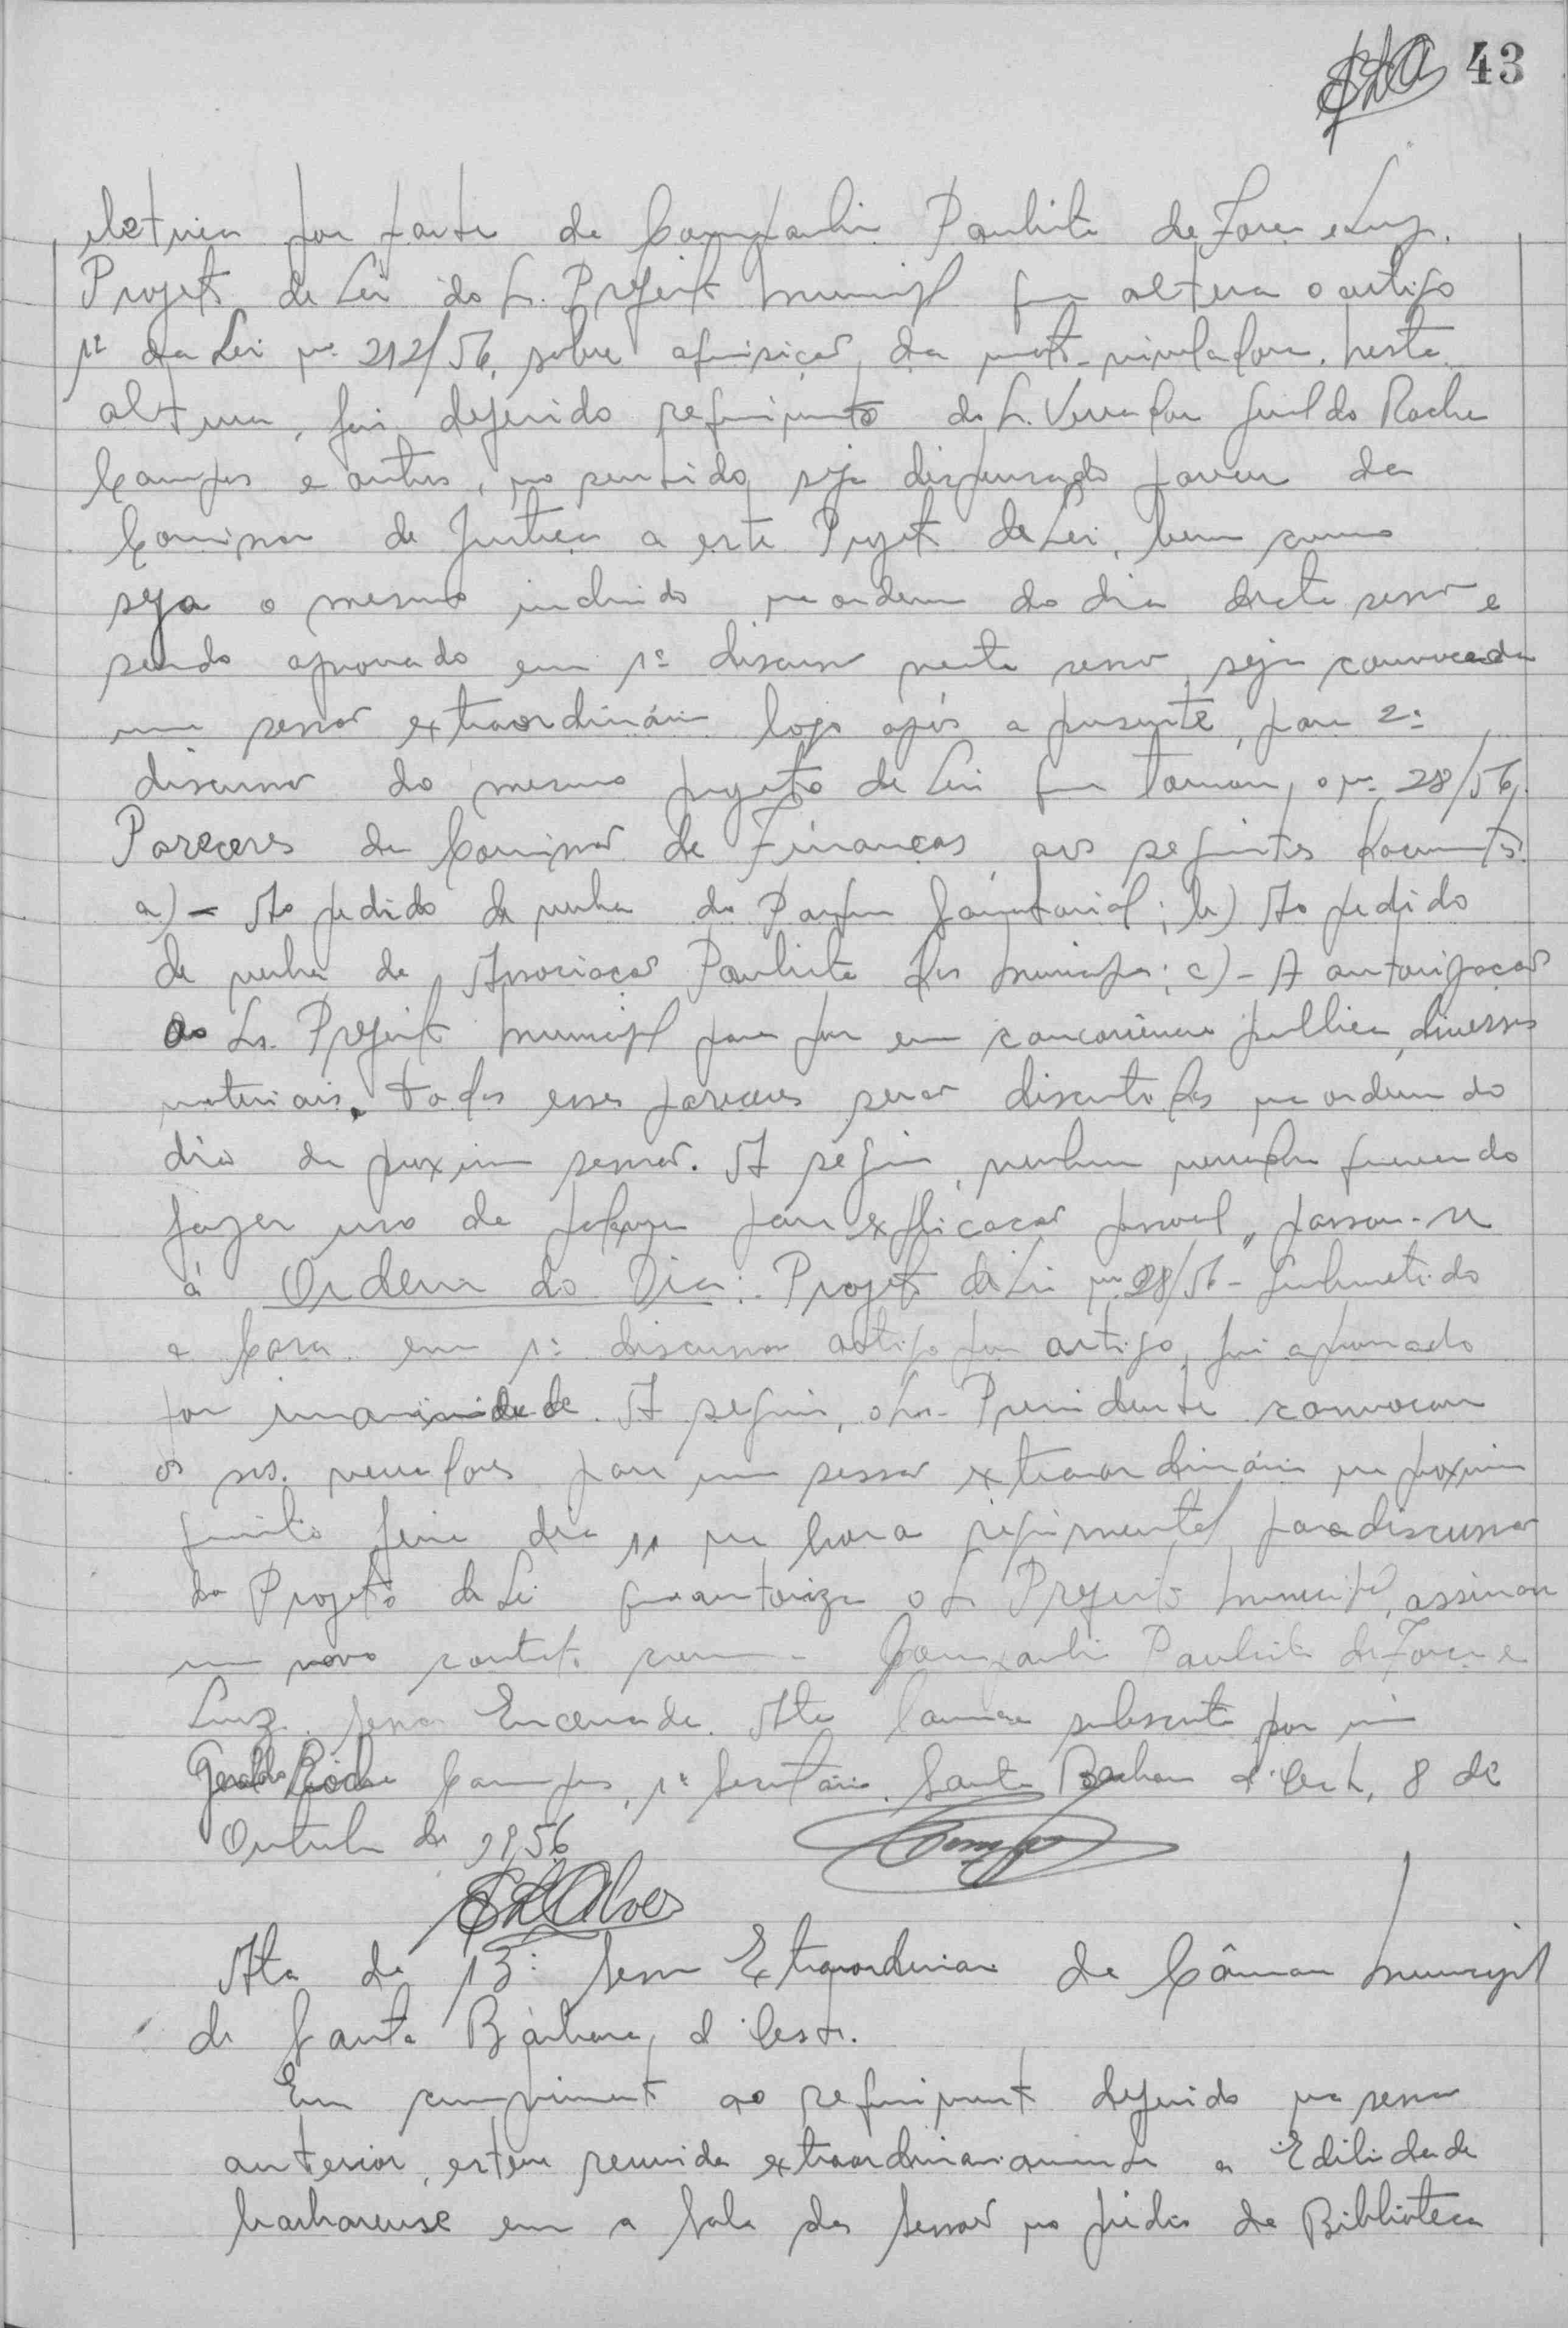 43
eletrica por parte da Companhia Paulista de Força e Luz.
Projeto de Lei do Sr. Prefeito Municipal que altera o artigo
1º da Lei nº 212/56, sobre aquisição da moto-niveladora. Nesta
altura, foi deferido requerimento do Sr. Vereador Geraldo Rocha
Campos e outros, no sentido seja dispensado parecer da
Comissão de Justiça a este Projeto de Lei, bem como
seja o mesmo incluido na ordem do dia desta sessão e
sendo aprovado em 1ª discussão nesta sessão, seja convocada
uma sessão extraordinária logo após a presente, para 2ª
discussão do mesmo projeto de Lei que tomou o nº 28/56.
Pareceres da Comissão de Finanças aos seguintes documentos:
a) - Ao pedido de verba do Parque Sanatorial; b) Ao pedido
de verba da Associação Paulista dos Municipios; c) - A autorização
ao Sr. Prefeito Municipal para por em concorrência publica, diversos
materiais. Todos esses pareceres serão discutidos na ordem do
dia da proxima sessão. A seguir, nenhum vereador querendo
fazer uso da palavra para explicação pessoal, passou-se
á Ordem do Dia: Projeto de Lei nº 28/56 - Submetido
a Casa em 1ª discussão artigo por artigo, foi aprovado
por unanimidade. A seguir, o Sr. Presidente convocou
os srs. vereadores para uma sessão extraordinária na proxima
quinta feira dia 11 na hora regimental para discussão
do Projeto de Lei que autoriza o Sr. Prefeito Municipal, assinar
um novo contrato com a Companhia Paulista de Força e
Luz. Sessão Encerrada. Ata lavrada e subscrita por mim
Geraldo Rocha Campos, 1º Secretário. Santa Barbara d'Oeste, 8 de
Outubro de 1956
Ata da 13ª Sessão Extraordinaria da Câmara Municipal
de Santa Bárbara, d'Oeste.
Em cumprimento ao requerimento deferido na sessão
anterior, esteve reunida extraordinariamente a Edilidade
barbarense em a Sala das Sessões no prédio da Biblioteca